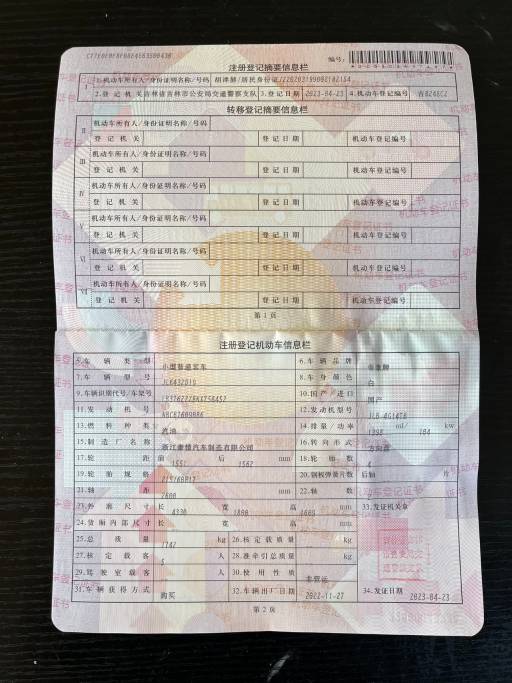 编号:
注册登记摘要信息栏
I
1.机动车所有人/身份证明名称/号码
居民身份证
2.登记机关 吉林省吉林市公安局交通警察支队 3.登记日期 2023-04-23 4.机动车登记编号
转移登记摘要信息栏
II
机动车所有人/身份证明名称/号码
登记机关 登记日期 机动车登记编号
III
机动车所有人/身份证明名称/号码
登记机关 登记日期 机动车登记编号
IV
机动车所有人/身份证明名称/号码
登记机关 登记日期 机动车登记编号
V
机动车所有人/身份证明名称/号码
登记机关 登记日期 机动车登记编号
VI
机动车所有人/身份证明名称/号码
登记机关 登记日期 机动车登记编号
VII
机动车所有人/身份证明名称/号码
登记机关 登记日期 机动车登记编号
第1页
注册登记机动车信息栏
5.车辆类型 小型普通客车 6.车辆品牌
7.车辆型号 8.车身颜色 白
9.车辆识别代号/车架号 10.国产/进口 国产
11.发动机号 12.发动机型号
13.燃料种类 汽油 14.排量/功率 ml/ kw
15.制造厂名称 浙江豪情汽车制造有限公司 16.转向形式 方向盘
17.轮距 前 1551 后 1567 mm 18.轮胎数 4
19.轮胎规格 20.钢板弹簧片数 后轴 片
21.轴距 2600 mm 22.轴数
23.外廓尺寸 长 4330 宽 1800 高 mm 33.发证机关章
24.货厢内部尺寸 长 宽 高 mm
25.总质量 kg 26.核定载质量 kg
27.核定载客 5 人 28.准牵引总质量 kg
29.驾驶室载客 人 30.使用性质 非营运
31.车辆获得方式 购买 32.车辆出厂日期 2022-11-27 34.发证日期 2023-04-23
第2页